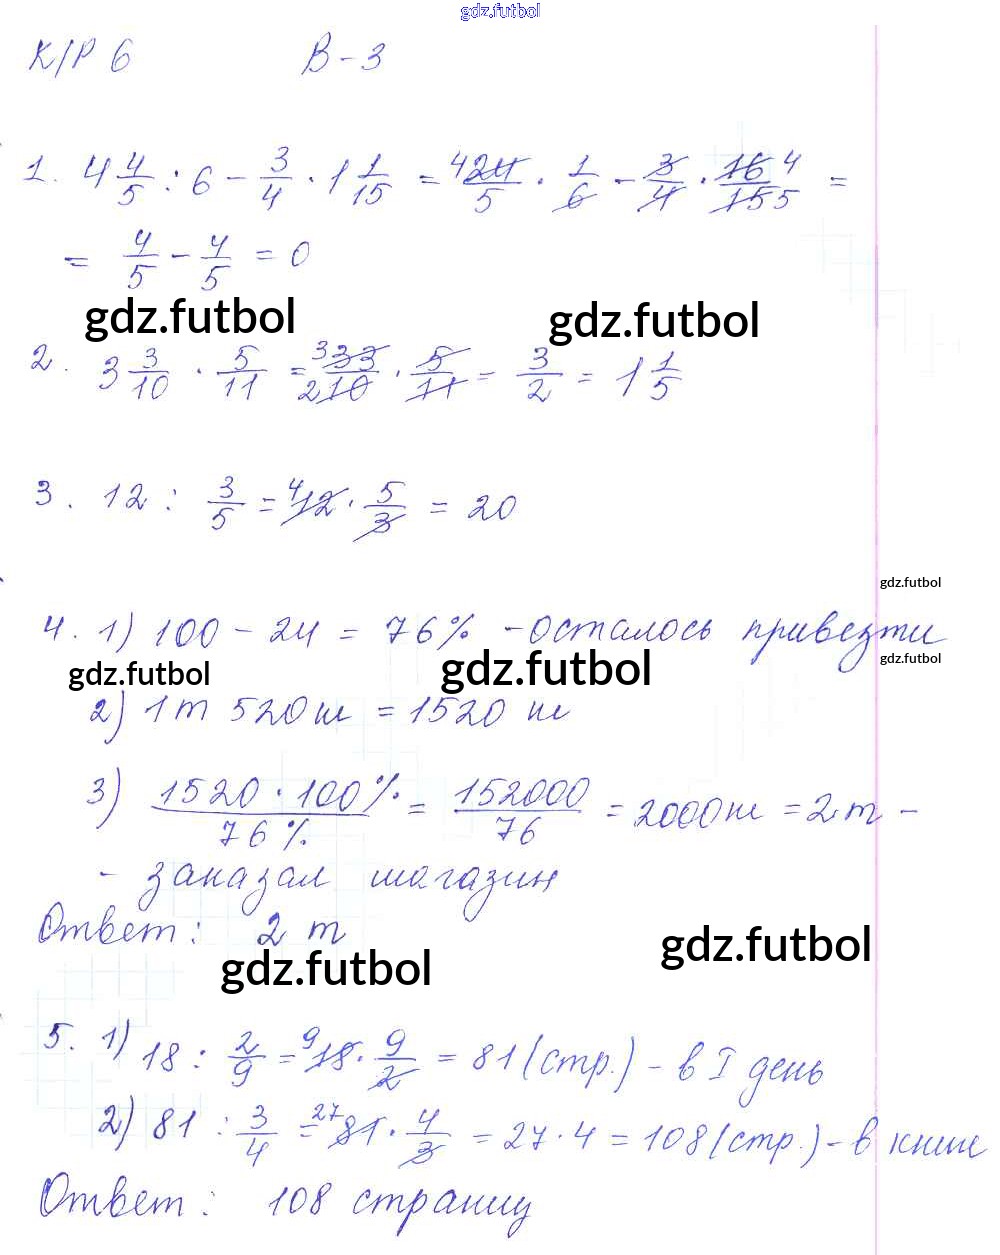 gdz.futbol
К/Р 6 В-3
1. 4 4/5 : 6 - 3/4 · 1 1/15 = 4 24/5 · 1/6 - 3/4 · 16/15 4 5 =
= 4/5 - 4/5 = 0
gdz.futbol gdz.futbol
2. 3 3/10 · 5/11 = 3 33/2 10 · 5/11 = 3/2 = 1 1/5
3. 12 : 3/5 = 4 12 · 5/3 = 20
gdz.futbol
4. 1) 100 - 24 = 76% - осталось привезти
gdz.futbol gdz.futbol gdz.futbol
2) 1т 520 кг = 1520 кг
3) 1520 · 100%/76% = 152000/76 = 2000 кг = 2 т -
- заказал магазин
Ответ: 2 т
gdz.futbol gdz.futbol
5. 1) 18 : 2/9 = 9 18 · 9/2 = 81 (стр.) - в I день
2) 81 : 3/4 = 27 81 · 4/3 = 27 · 4 = 108 (стр.) - в книге
Ответ: 108 страниц